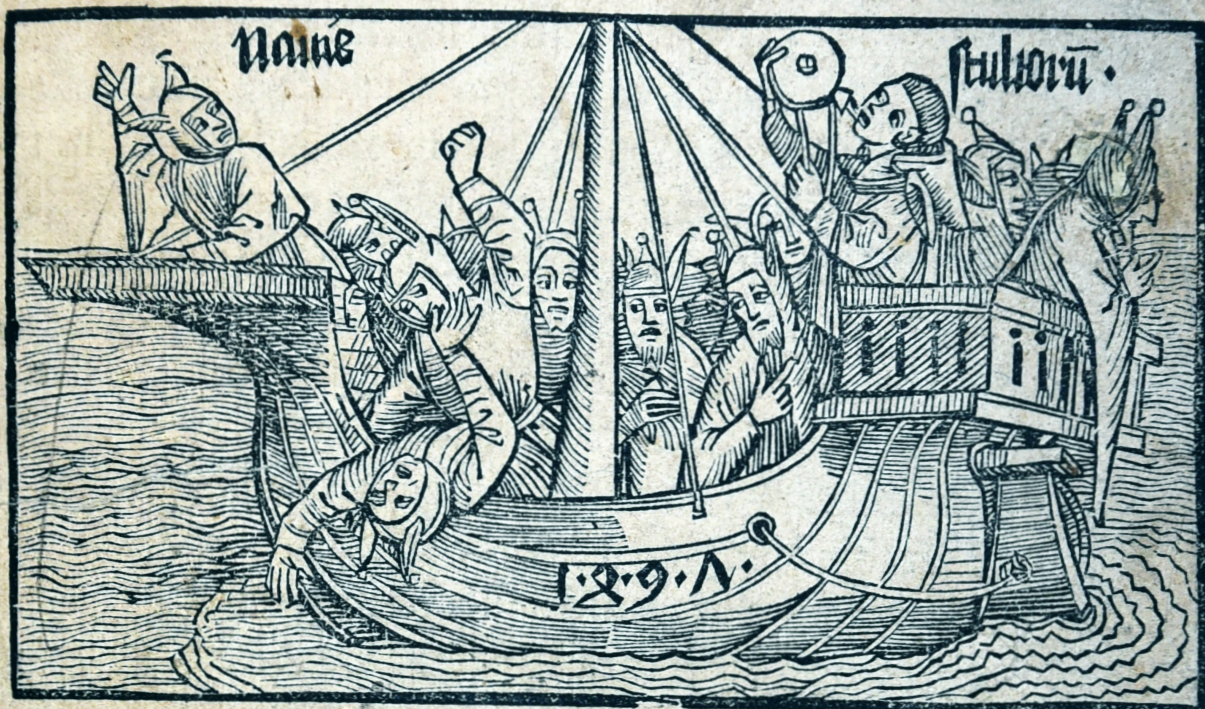 Nauis stultorū.
1·4·9·7·